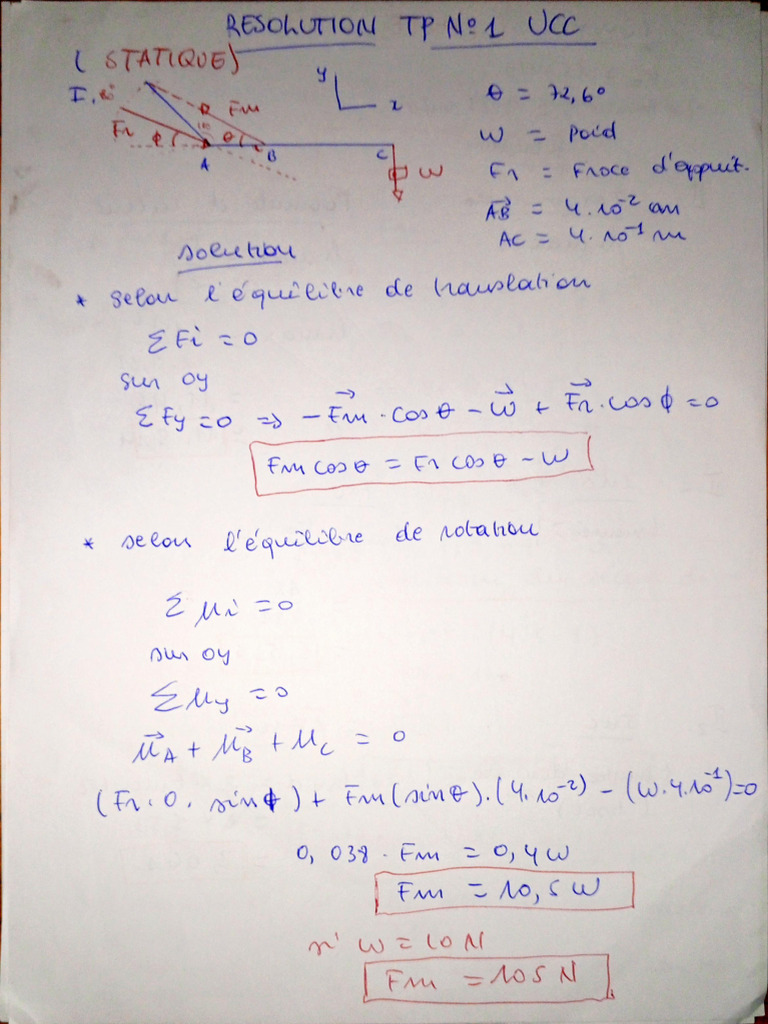 RESOLUTION TP N°1 UCC
(STATIQUE)
I.
y
Fm
Fr ϕ θ
A B C W
θ = 72,6°
W = Poid
Fr = Froce d'appuit.
AB = 4.10⁻² cm
AC = 4.10⁻¹ m
solution
* Selon l'équilibre de translation
ΣFi = 0
sur oy
ΣFy = 0 => -Fm.cosθ - W + Fr.cosϕ = 0
Fm cosθ = Fr cosθ - W
* selon l'équilibre de rotation
Σμi = 0
sur oy
Σμy = 0
μA + μB + μC = 0
(Fr.0.sinϕ) + Fm(sinθ).(4.10⁻²) - (W.4.10⁻¹) = 0
0,038.Fm = 0,4W
Fm = 10,5W
si W = 10N
Fm = 105N